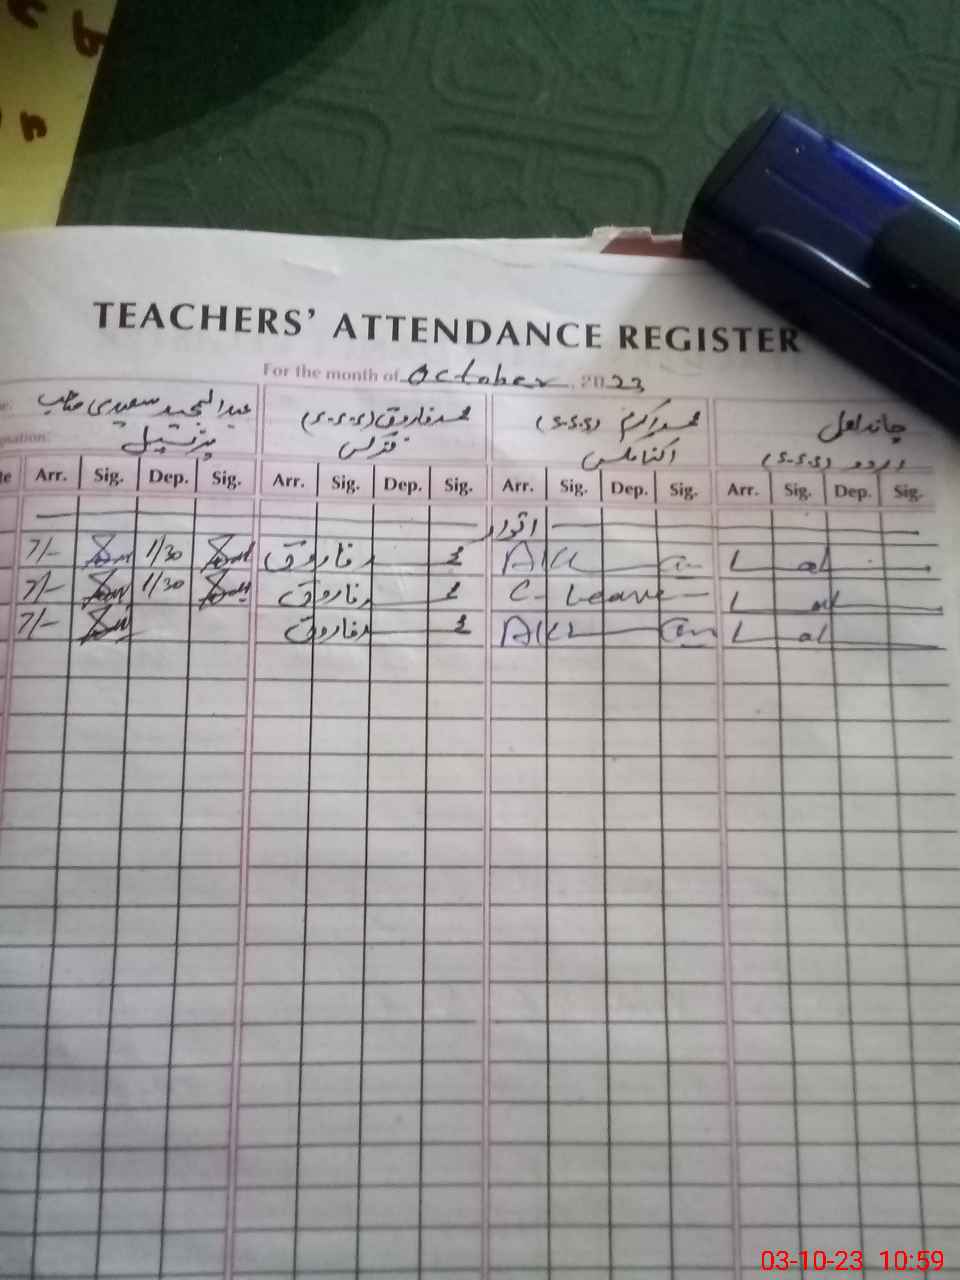 TEACHERS' ATTENDANCE REGISTER
For the month of October 2023
عبدالمجید سعیدی صاحب محمد فاروق (S.S.S) محمد اکرم (S.S.S) چاند لعل
پرنسپل فزکس اکنامکس اردو (S.S.S)
Arr. Sig. Dep. Sig. Arr. Sig. Dep. Sig. Arr. Sig. Dep. Sig. Arr. Sig. Dep. Sig.
اتوار
7/- 1/30 فاروق L al
7/- 1/30 فاروق C- Leave - L al
7/- فاروق L al
03-10-23 10:59